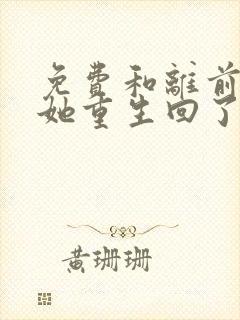 免费和離前
她重生回了
黄珊珊